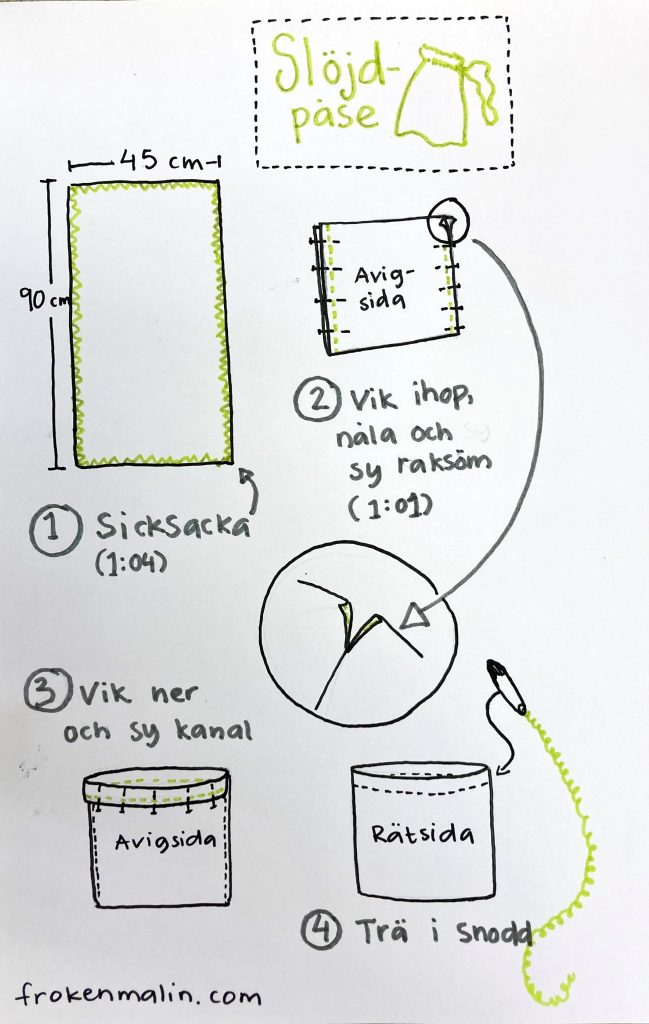 Slöjd-
påse
45 cm
90 cm
Avig-
sida
② Vik ihop,
nåla och sy
sy raksöm
(1:01)
① Sicksacka
(1:04)
③ Vik ner
och sy kanal
Avigsida
Rätsida
④ Trä i snodd
frokenmalin.com